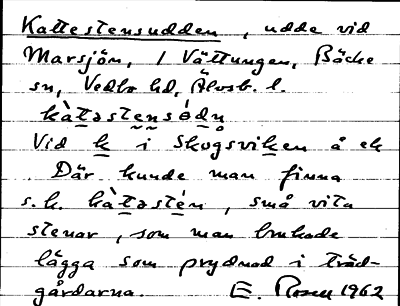 Kattestensudden, udde vid
Marsjön, / Vättungen, Bäcke
sn, Vedbo hd, Älvsb. l.
kàtəstensədn
Vid k i Skogsviken å ek
Där kunde man finna
s.k. kàtəstén, små vita
stenar, som man brukade
lägga som prydnad i träd-
gårdarna. E. Rosell 1962